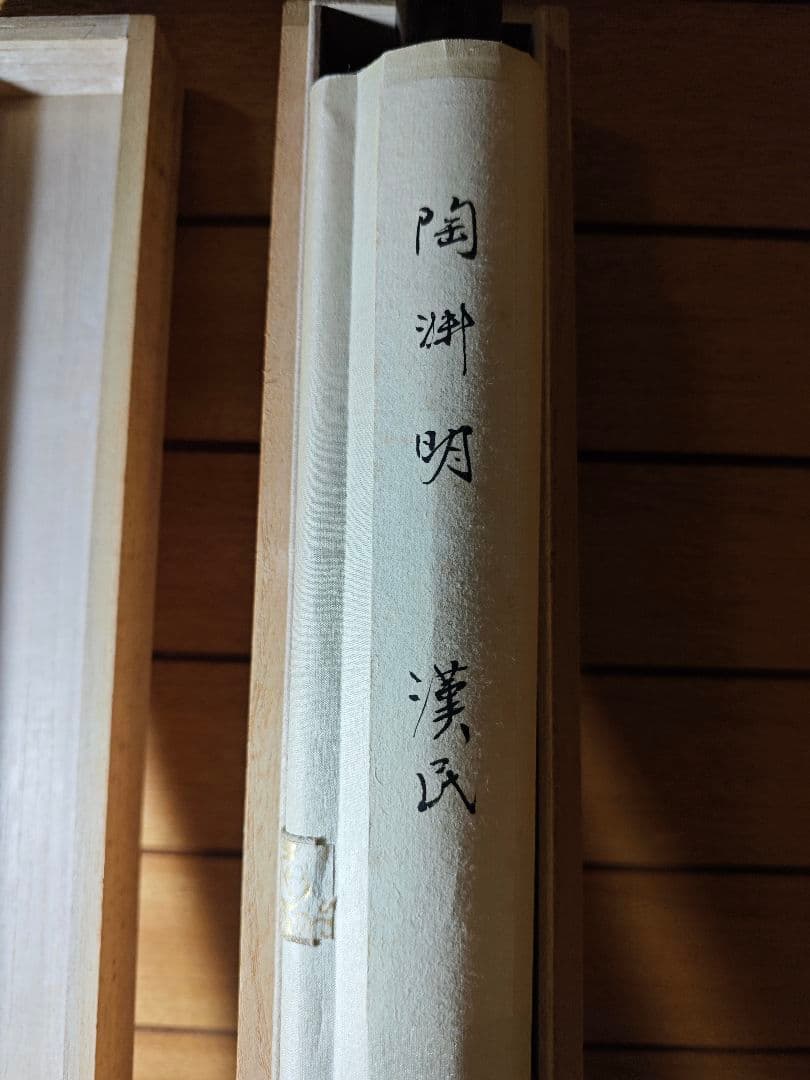 陶渊明 漢民